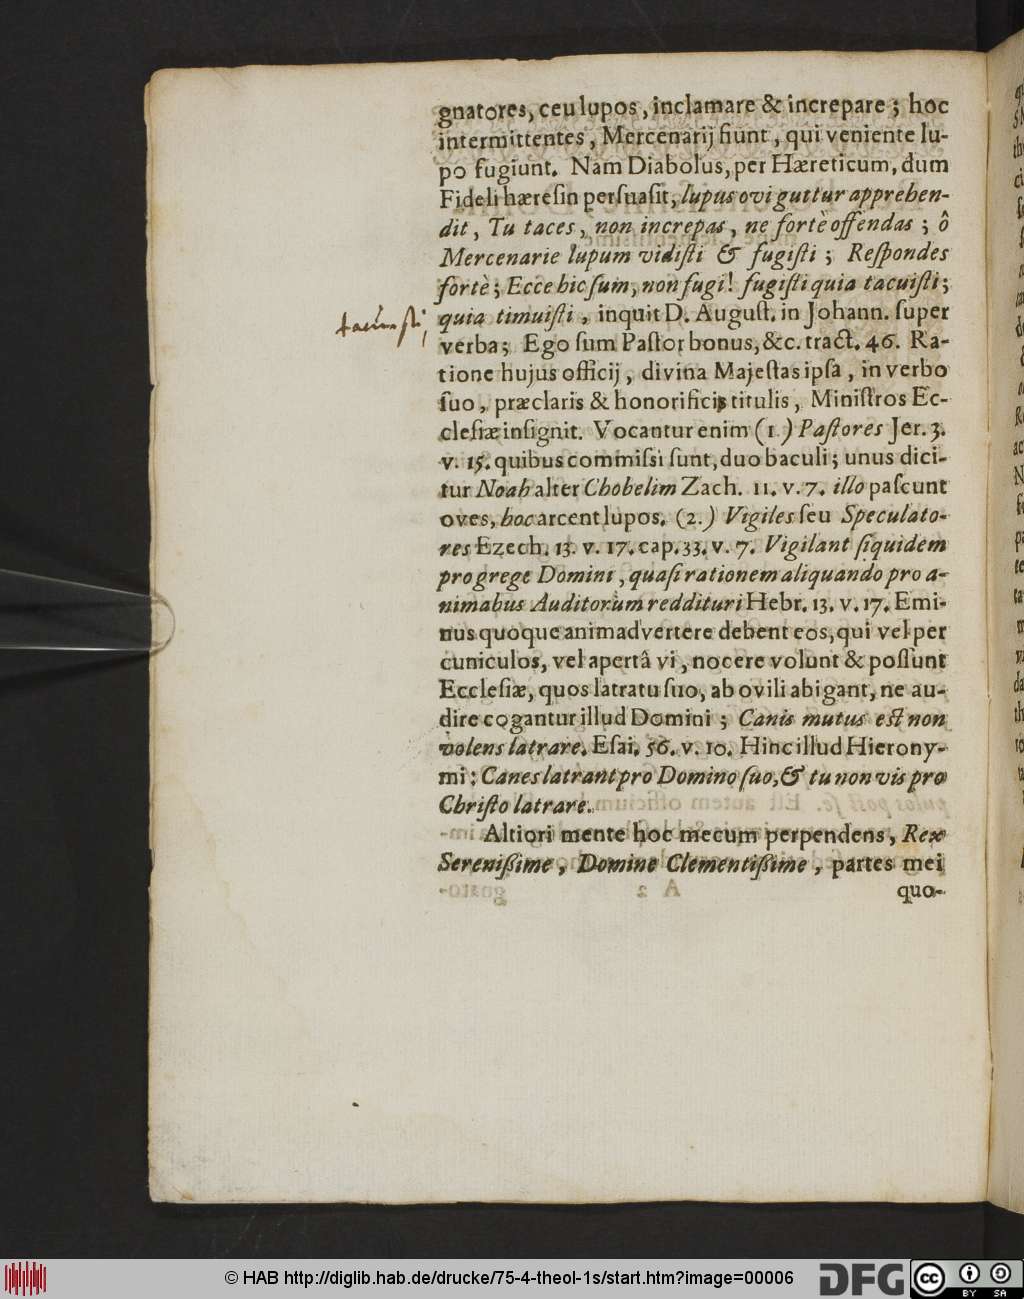 gnatores, ceu lupos, inclamare & increpare; hoc
intermittentes, Mercenarij fiunt, qui veniente lu-
po fugiunt. Nam Diabolus, per Hæreticum, dum
Fideli hæreſin perſuaſit, lupus ovi guttur apprehen-
dit, Tu taces, non increpas, ne fortè offendas; ô
Mercenarie lupum vidiſti & fugiſti; Reſpondes
fortè; Ecce hic ſum, non fugi! fugiſti quia tacuiſti;
tacuisti,
quia timuiſti, inquit D. Auguſt. in Johann. ſuper
verba; Ego ſum Paſtor bonus, &c. tract. 46. Ra-
tione hujus officij, divina Majeſtas ipſa, in verbo
ſuo, præclaris & honorificis titulis, Miniſtros Ec-
cleſiæ inſignit. Vocantur enim (1.) Paſtores Jer. 3.
v. 15. quibus commiſſi ſunt, duo baculi; unus dici-
tur Noah alter Chobelim Zach. 11. v. 7. illo paſcunt
oves, hoc arcent lupos. (2.) Vigiles ſeu Speculato-
res Ezech. 13. v. 17. cap. 33. v. 7. Vigilant ſiquidem
pro grege Domini, quaſi rationem aliquando pro a-
nimabus Auditorum reddituri Hebr. 13. v. 17. Emi-
nus quoque animadvertere debent eos, qui vel per
cuniculos, vel apertâ vi, nocere volunt & poſſunt
Eccleſiæ, quos latratu ſuo, ab ovili abigant, ne au-
dire cogantur illud Domini; Canis mutus est non
volens latrare. Eſai. 56. v. 10. Hinc illud Hierony-
mi: Canes latrant pro Domino ſuo, & tu non vis pro
Chriſto latrare.
Altiori mente hoc mecum perpendens, Rex
Sereniſſime, Domine Clementiſſime, partes mei
quo-
© HAB http://diglib.hab.de/drucke/75-4-theol-1s/start.htm?image=00006
DFG
cc BY SA